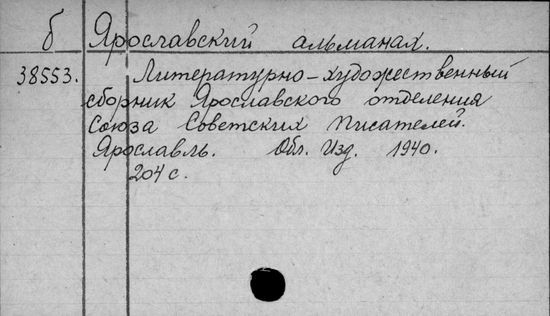 б Ярославский альманах.
38553. Литературно-художественный
сборник Ярославского отделения
Союза Советских Писателей.
Ярославль. Обл. Изд. 1940.
204 с.